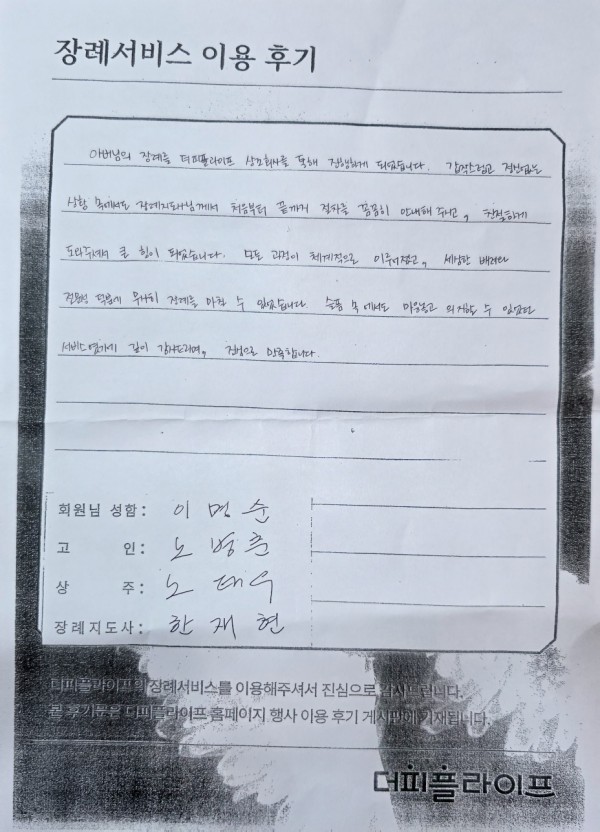 장례서비스 이용 후기
아버님의 장례를 더피플라이프 상조회사를 통해 진행하게 되었습니다. 갑작스럽고 경황없는
상황 속에서도 장례지도사님께서 처음부터 끝까지 절차를 꼼꼼히 안내해 주시고, 친절하게
도와주셔서 큰 힘이 되었습니다. 모든 과정이 체계적으로 이루어졌고, 세심한 배려와
전문성 덕분에 무사히 장례를 마칠 수 있었습니다. 슬픔 속에서도 마음놓고 의지할 수 있었던
서비스였기에 깊이 감사드리며, 진심으로 만족합니다.
회원님 성함: 이명순
고 인: 노병훈
상 주: 노태우
장례지도사: 한재현
더피플라이프의 장례서비스를 이용해주셔서 진심으로 감사드립니다.
본 후기글은 더피플라이프 홈페이지 행사 이용 후기 게시판에 기재됩니다.
더피플라이프